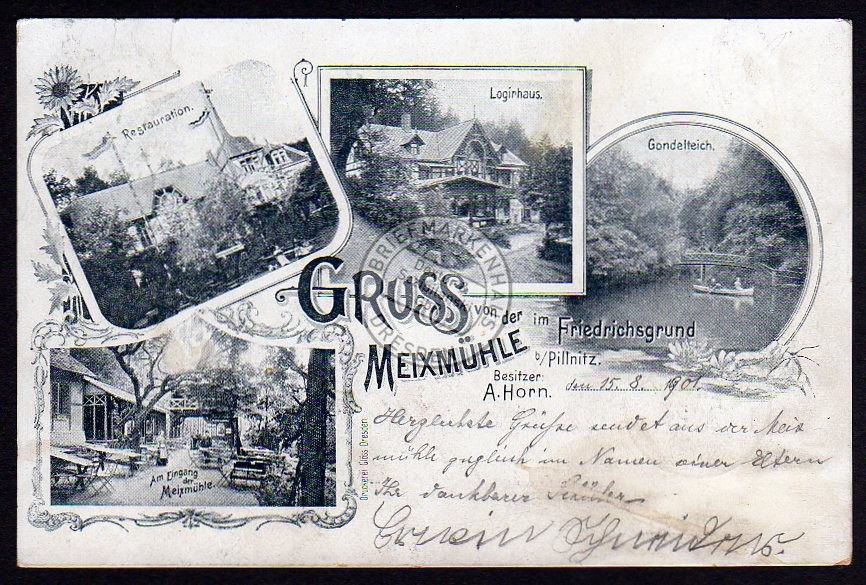 Restauration.
Logirhaus.
Gondelteich.
GRUSS von der
MEIXMÜHLE im Friedrichsgrund
b/Pillnitz.
Besitzer:
A. Horn.
den 15. 8. 1901.
Am Eingang
der
Meixmühle.
Druckerei Glöss Dresden
BRIEFMARKENHAUS
Herzlichste Grüße sendet aus der Meix
mühle zugleich im Namen seiner Eltern
Ihr dankbarer Schüler
Erwin